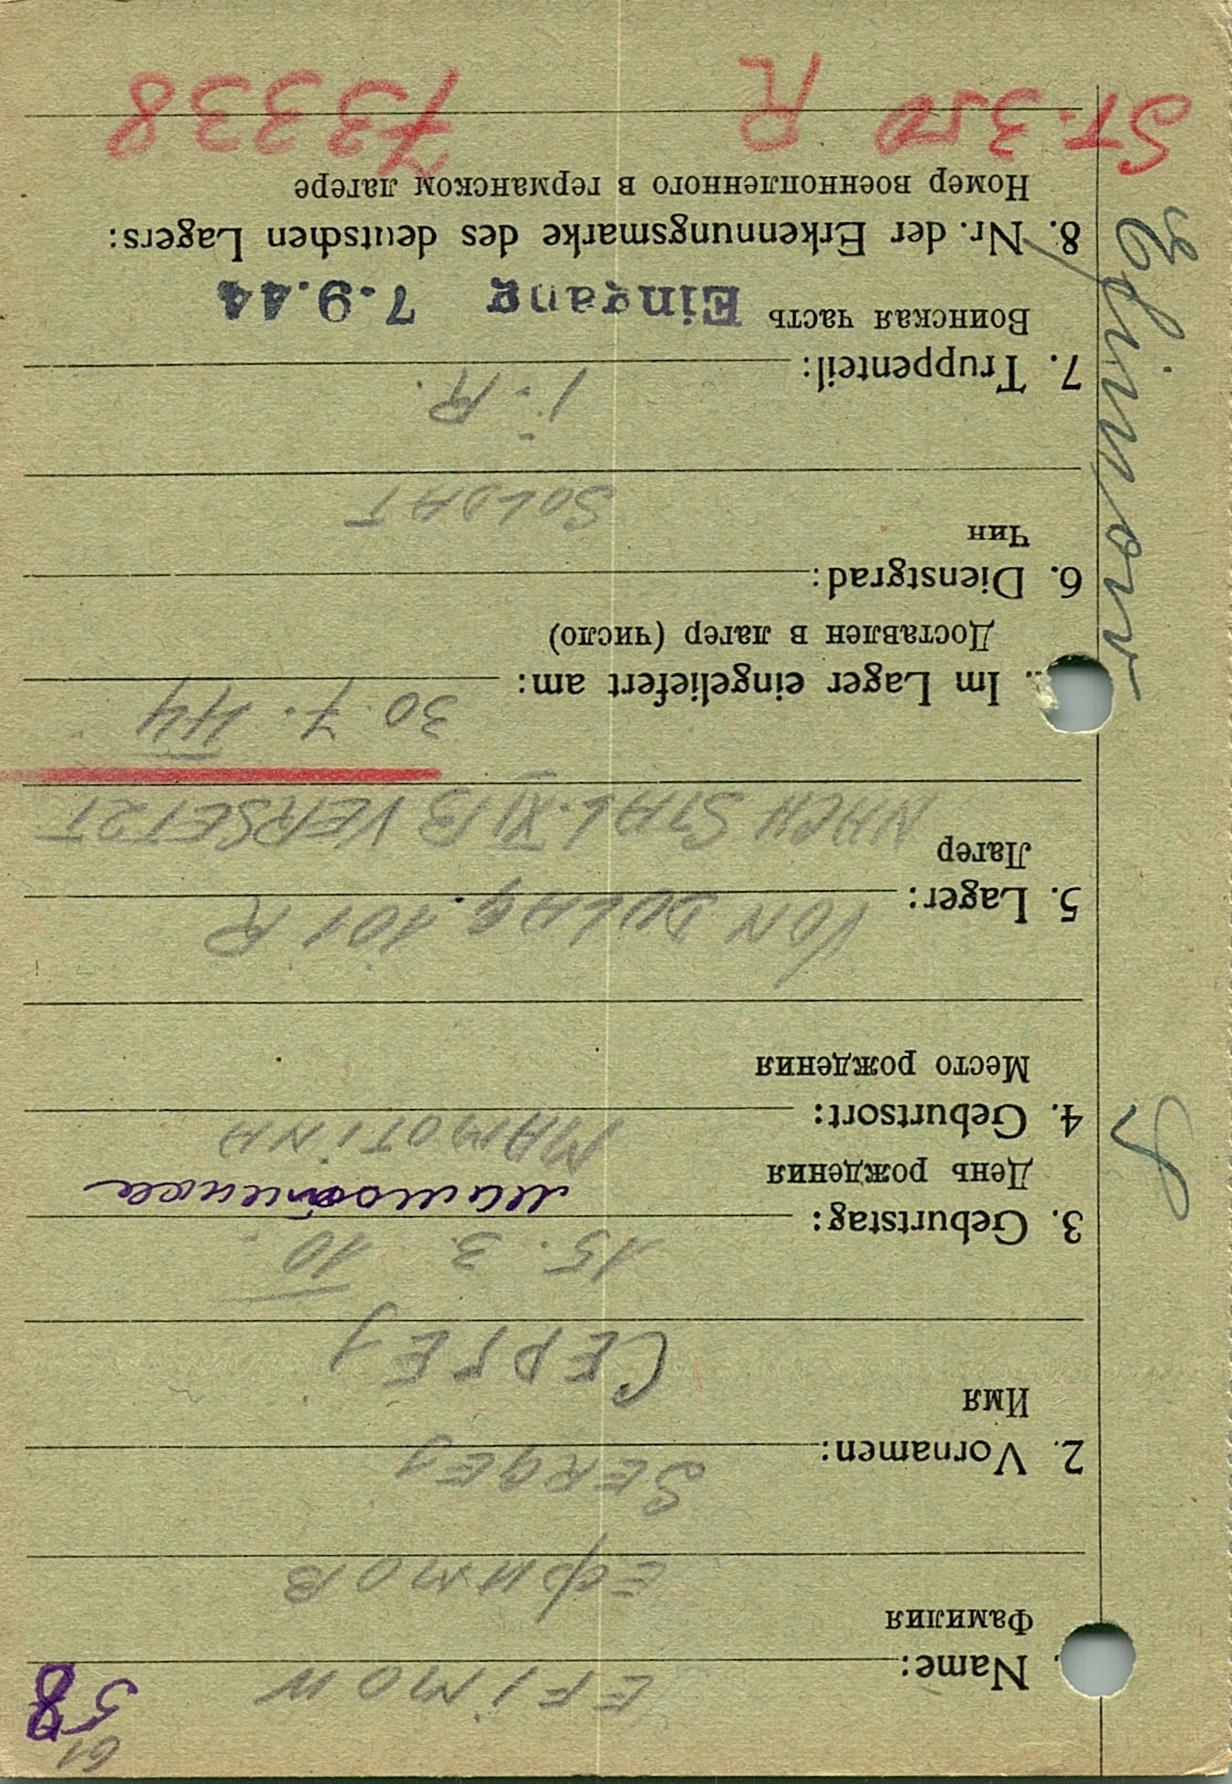 58
Name: EFIMOW
Фамилия ЕФИМОВ
2. Vornamen: SERGEJ
Имя СЕРГЕJ
3. Geburtstag: 15. 3. 10
День рождения
4. Geburtsort: MAMOTINA
Место рождения
5. Lager: VON DULAG. 101 R
Лагер NACH STAL. XI B VERSETZT
Im Lager eingeliefert am: 30. 7. 44
Доставлен в лагер (число)
6. Dienstgrad: SOLDAT
Чин
7. Truppenteil: J. R.
Воинская часть Eingang 7.9.44
8. Nr. der Erkennungsmarke des deutschen Lagers:
Номер военнопленного в германском лагере
ST. 350 R 73338
Efimow